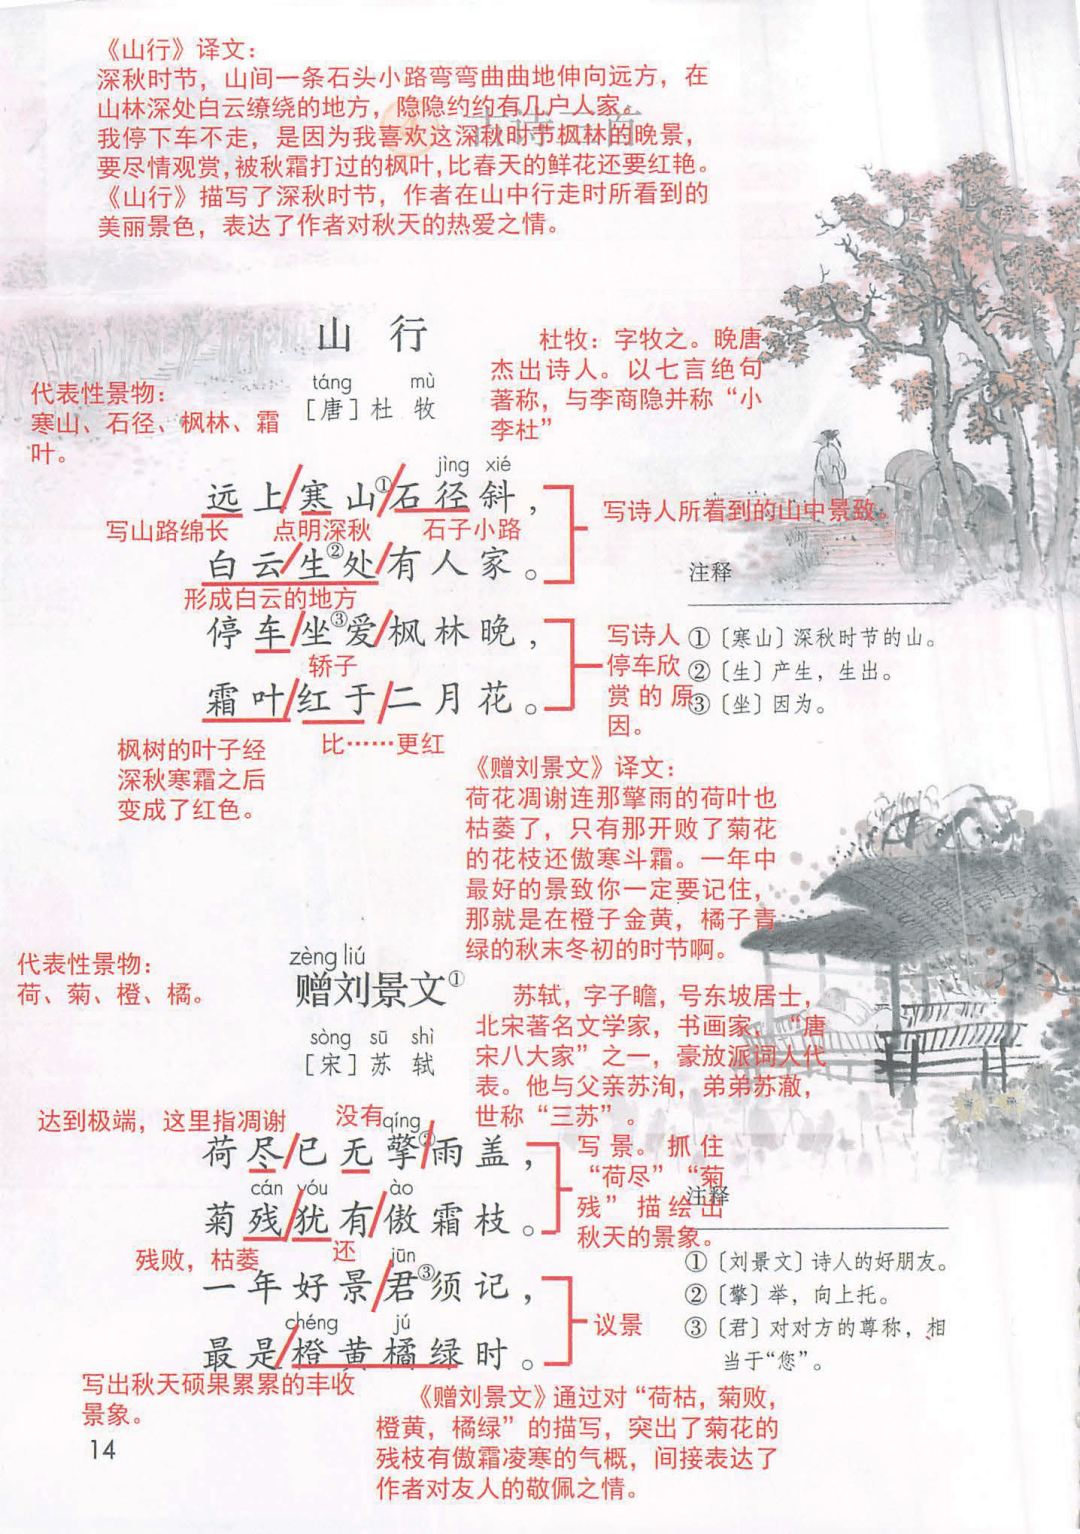 《山行》译文：
深秋时节，山间一条石头小路弯弯曲曲地伸向远方，在
山林深处白云缭绕的地方，隐隐约约有几户人家。
古诗二首
我停下车不走，是因为我喜欢这深秋时节枫林的晚景，
要尽情观赏，被秋霜打过的枫叶，比春天的鲜花还要红艳。
《山行》描写了深秋时节，作者在山中行走时所看到的
美丽景色，表达了作者对秋天的热爱之情。
山 行
táng mù
［唐］杜 牧
杜牧：字牧之。晚唐
杰出诗人。以七言绝句
著称，与李商隐并称“小
李杜”
代表性景物：
寒山、石径、枫林、霜
叶。
jìng xié
远上/寒山①/石径斜，
写山路绵长 点明深秋 石子小路
写诗人所看到的山中景致。
白云/生②处/有人家。
形成白云的地方
停车/坐③爱/枫林晚，
轿子
写诗人
停车欣
赏的原
因。
霜叶/红于/二月花。
比……更红
枫树的叶子经
深秋寒霜之后
变成了红色。
注释
①〔寒山〕深秋时节的山。
②〔生〕产生，生出。
③〔坐〕因为。
《赠刘景文》译文：
荷花凋谢连那擎雨的荷叶也
枯萎了，只有那开败了菊花
的花枝还傲寒斗霜。一年中
最好的景致你一定要记住，
那就是在橙子金黄，橘子青
绿的秋末冬初的时节啊。
代表性景物：
荷、菊、橙、橘。
zèng liú
赠刘景文①
sòng sū shì
［宋］苏 轼
苏轼，字子瞻，号东坡居士，
北宋著名文学家，书画家，“唐
宋八大家”之一，豪放派词人代
表。他与父亲苏洵，弟弟苏澈，
世称“三苏”。
达到极端，这里指凋谢 没有
qíng
荷尽/已无擎②/雨盖，
cán yóu ào
菊残/犹有/傲霜枝。
残败，枯萎 还
写景。抓住
“荷尽”“菊
残”描绘出
秋天的景象。
jūn
一年好景/君③须记，
chéng jú
最是/橙黄橘绿时。
议景
写出秋天硕果累累的丰收
景象。
注释
①〔刘景文〕诗人的好朋友。
②〔擎〕举，向上托。
③〔君〕对对方的尊称，相
当于“您”。
《赠刘景文》通过对“荷枯，菊败，
橙黄，橘绿”的描写，突出了菊花的
残枝有傲霜凌寒的气概，间接表达了
作者对友人的敬佩之情。
14